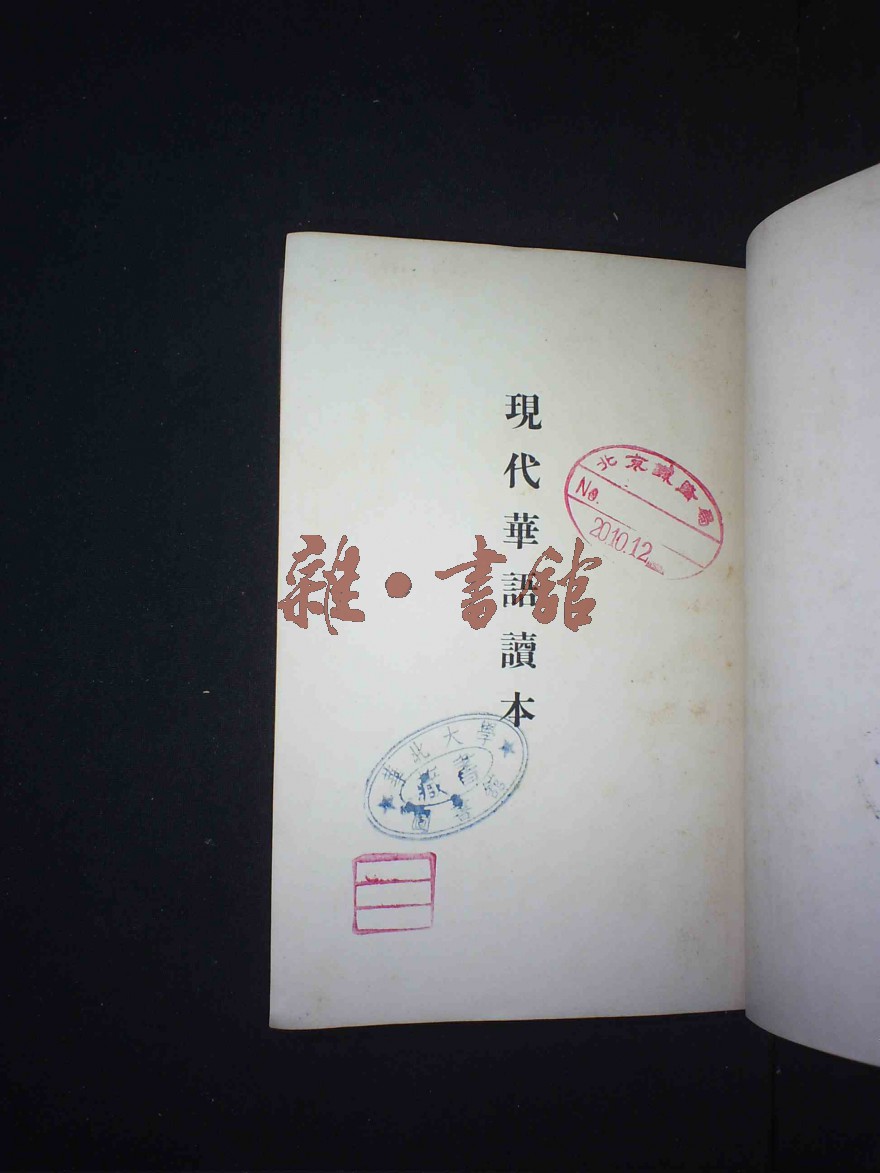 現代華語讀本
北京鐵路局
No.
20.10.12
雜·書館
華北大學
圖書館
藏書